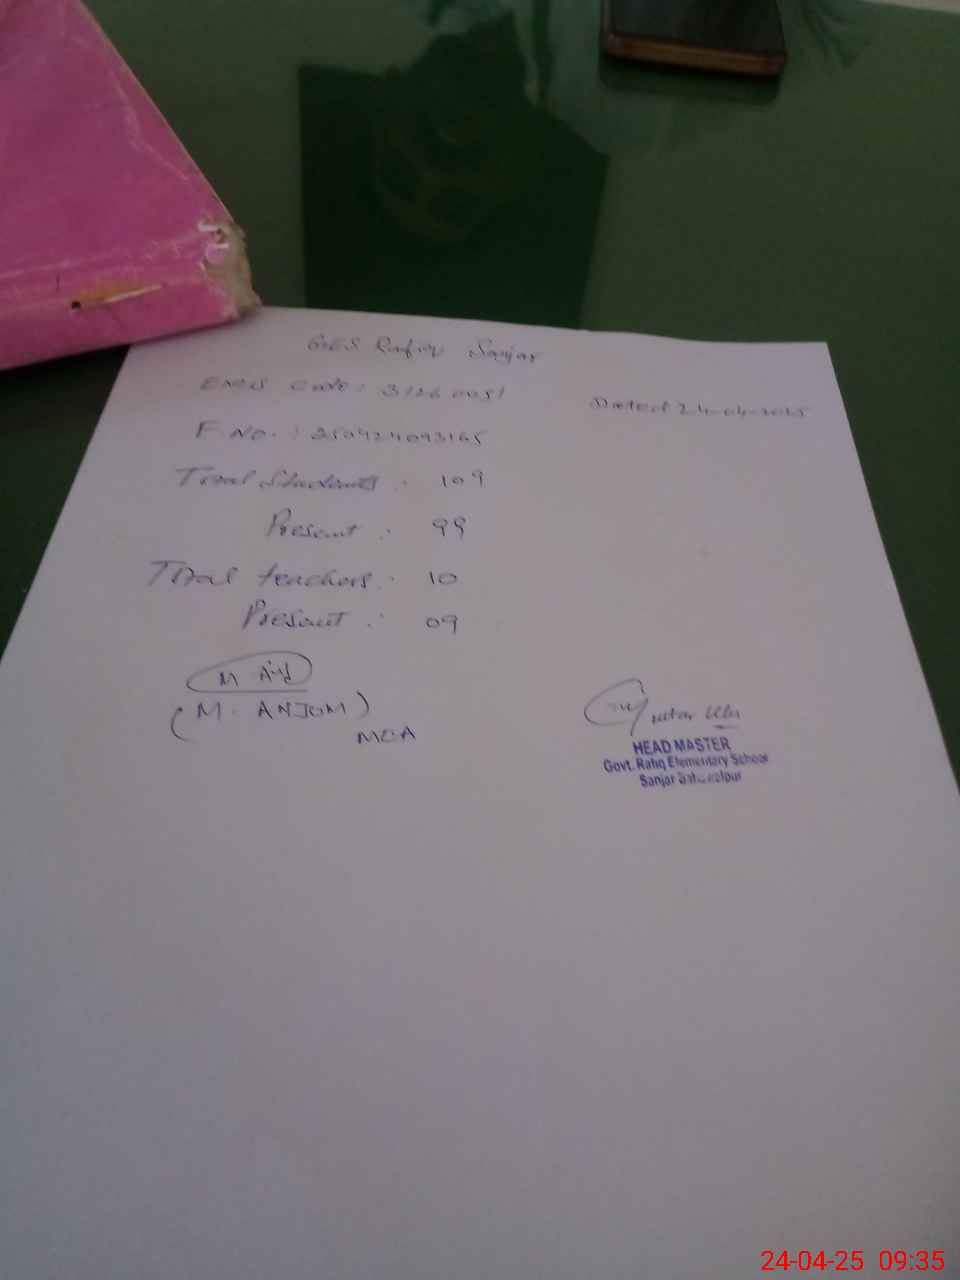 GES Rafiq Sanjar
EMIS Code: 31260051
Dated 24-04-2025
F. No. : 250424093165
Total Students : 109
Present : 99
Total teachers : 10
Present : 09
(M. ANJUM)
MEA
HEAD MASTER
Govt. Rafiq Elementary School
Sanjar
24-04-25 09:35